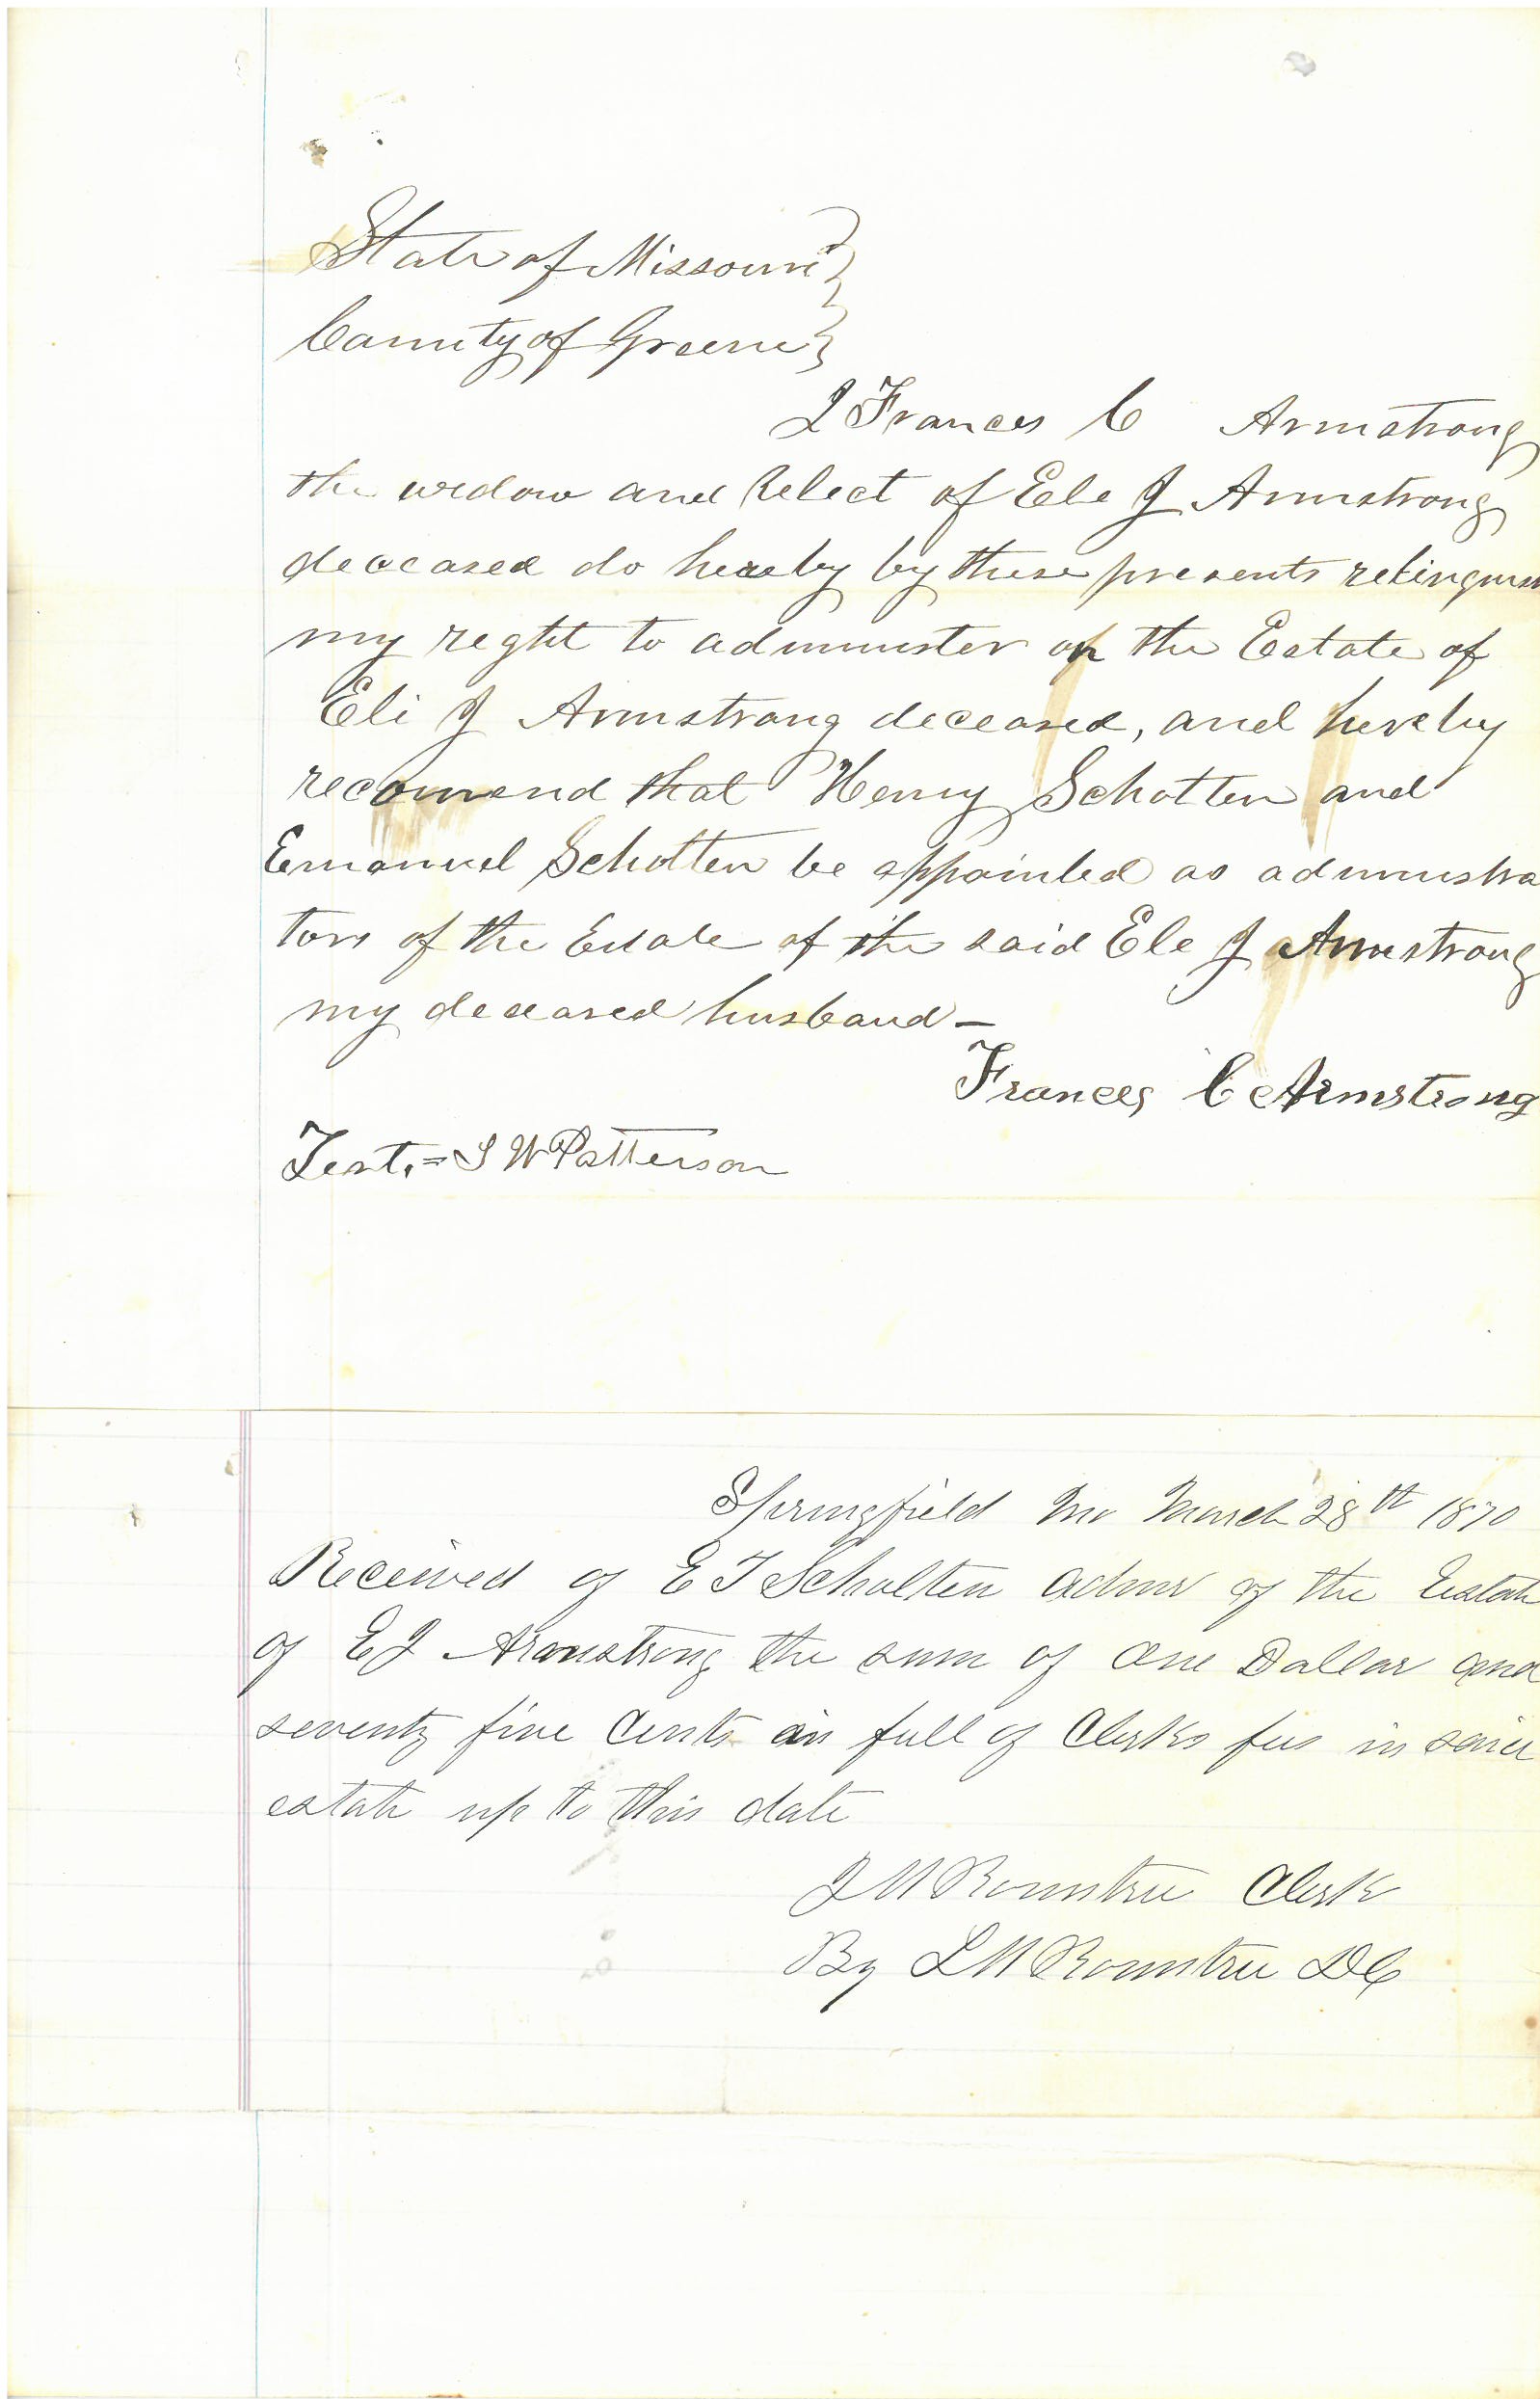 State of Missouri }
County of Greene }
I Frances C Armstrong
the widow and Relect of Ele J Armstrong
deceased do hereby by these presents relinquish
my right to administer on the Estate of
Eli J Armstrong deceased, and hereby
recomend that Henry Schotten and
Emanuel Schotten be appointed as administra
tors of the Estate of the said Ele J Armstrong
my deceased husband —
Frances C Armstrong
Test. = S W Patterson
Springfield Mo March 28th 1870
Received of E T Scholten Admr of the Estate
of E J Armstrong the sum of One Dollar and
seventy five Cents in full of Clerks fees in said
estate up to this date
J M Rountree Clerk
By L M Rountree DC